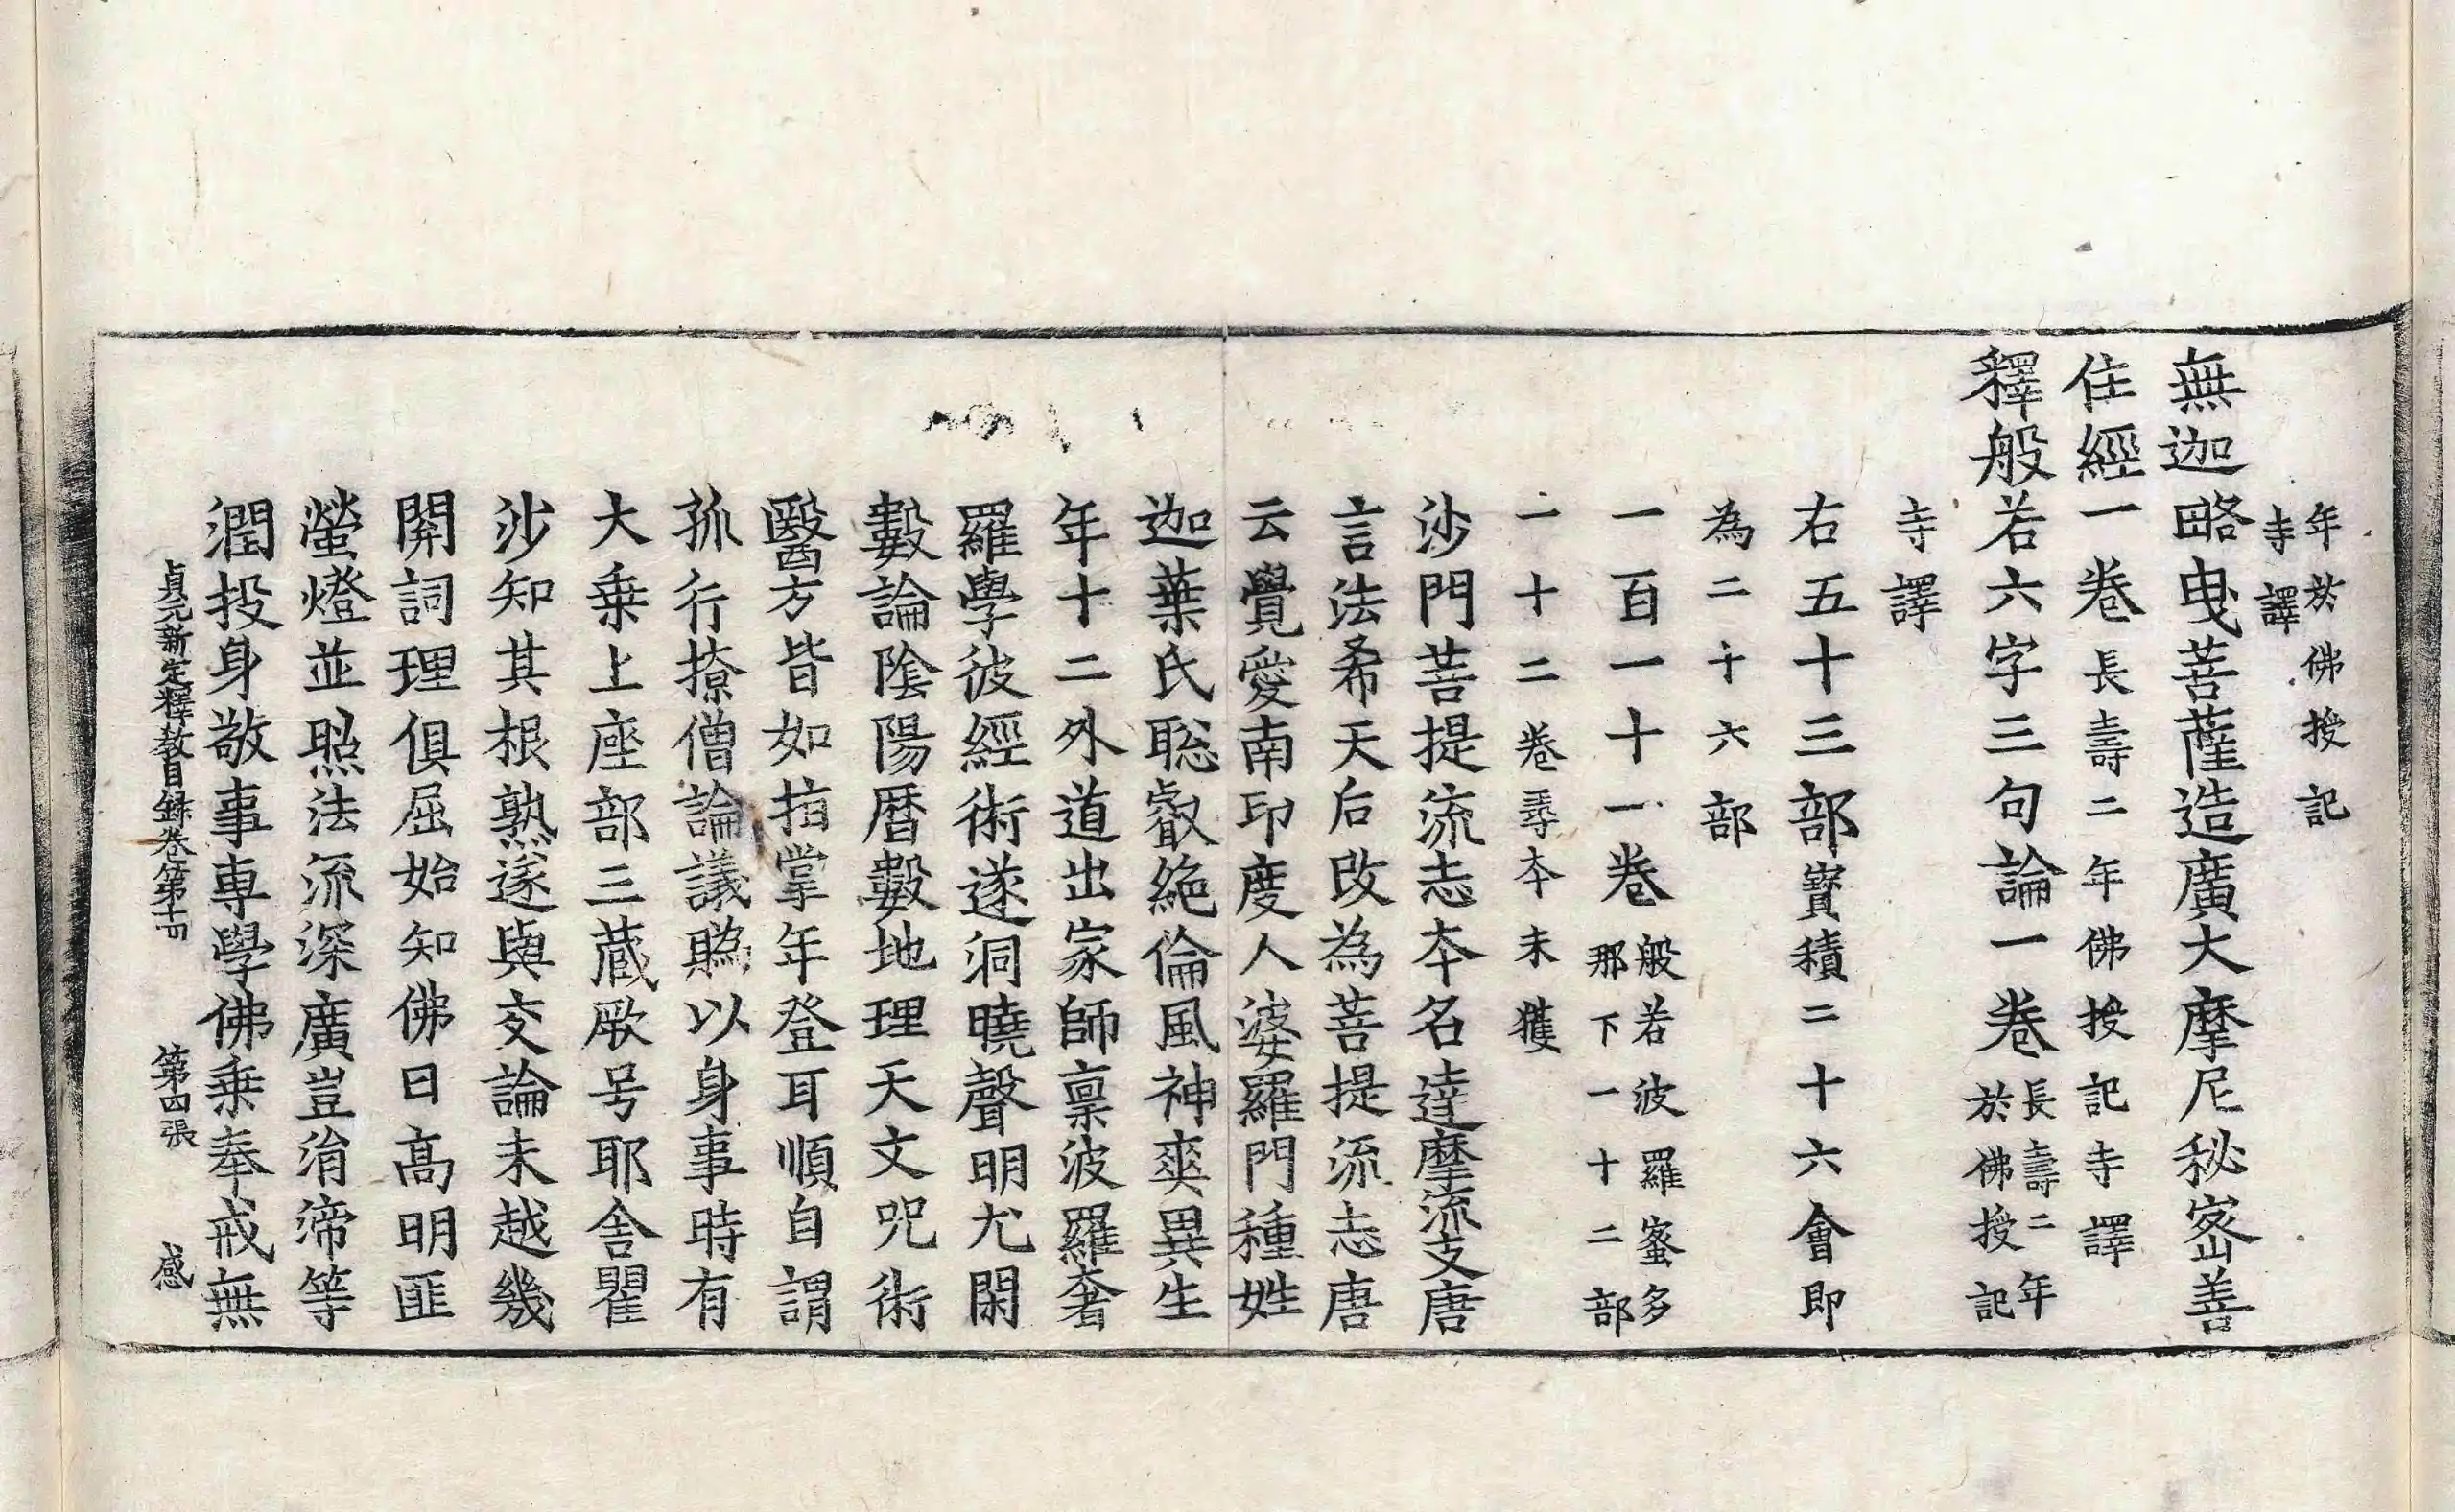 年於佛授記
寺譯
無迦略曳菩薩造廣大摩尼秘密善
住經一卷長壽二年佛授記寺譯
釋般若六字三句論一卷長壽二年
於佛授記
寺譯
右五十三部寶積二十六會即
為二十六部
一百一十一卷般若波羅蜜多
那下一十二部
一十二卷尋本未獲
沙門菩提流志本名達摩流支唐
言法希天后改為菩提流志唐
云覺愛南印度人婆羅門種姓
迦葉氏聡叡絶倫風神爽異生
年十二外道出家師禀波羅奢
羅學彼經術遂洞曉聲明尤閑
數論陰陽曆數地理天文呪術
醫方皆如指掌年登耳順自謂
孤行撩僧論議賭以身事時有
大乗上座部三蔵厥号耶舍瞿
沙知其根熟遂與交論未越幾
開詞理俱屈始知佛日高明匪
螢燈並照法流深廣豈㳙渧等
潤投身敬事專學佛乗奉戒無
貞元新定釋教目録卷第十四 第四張 感